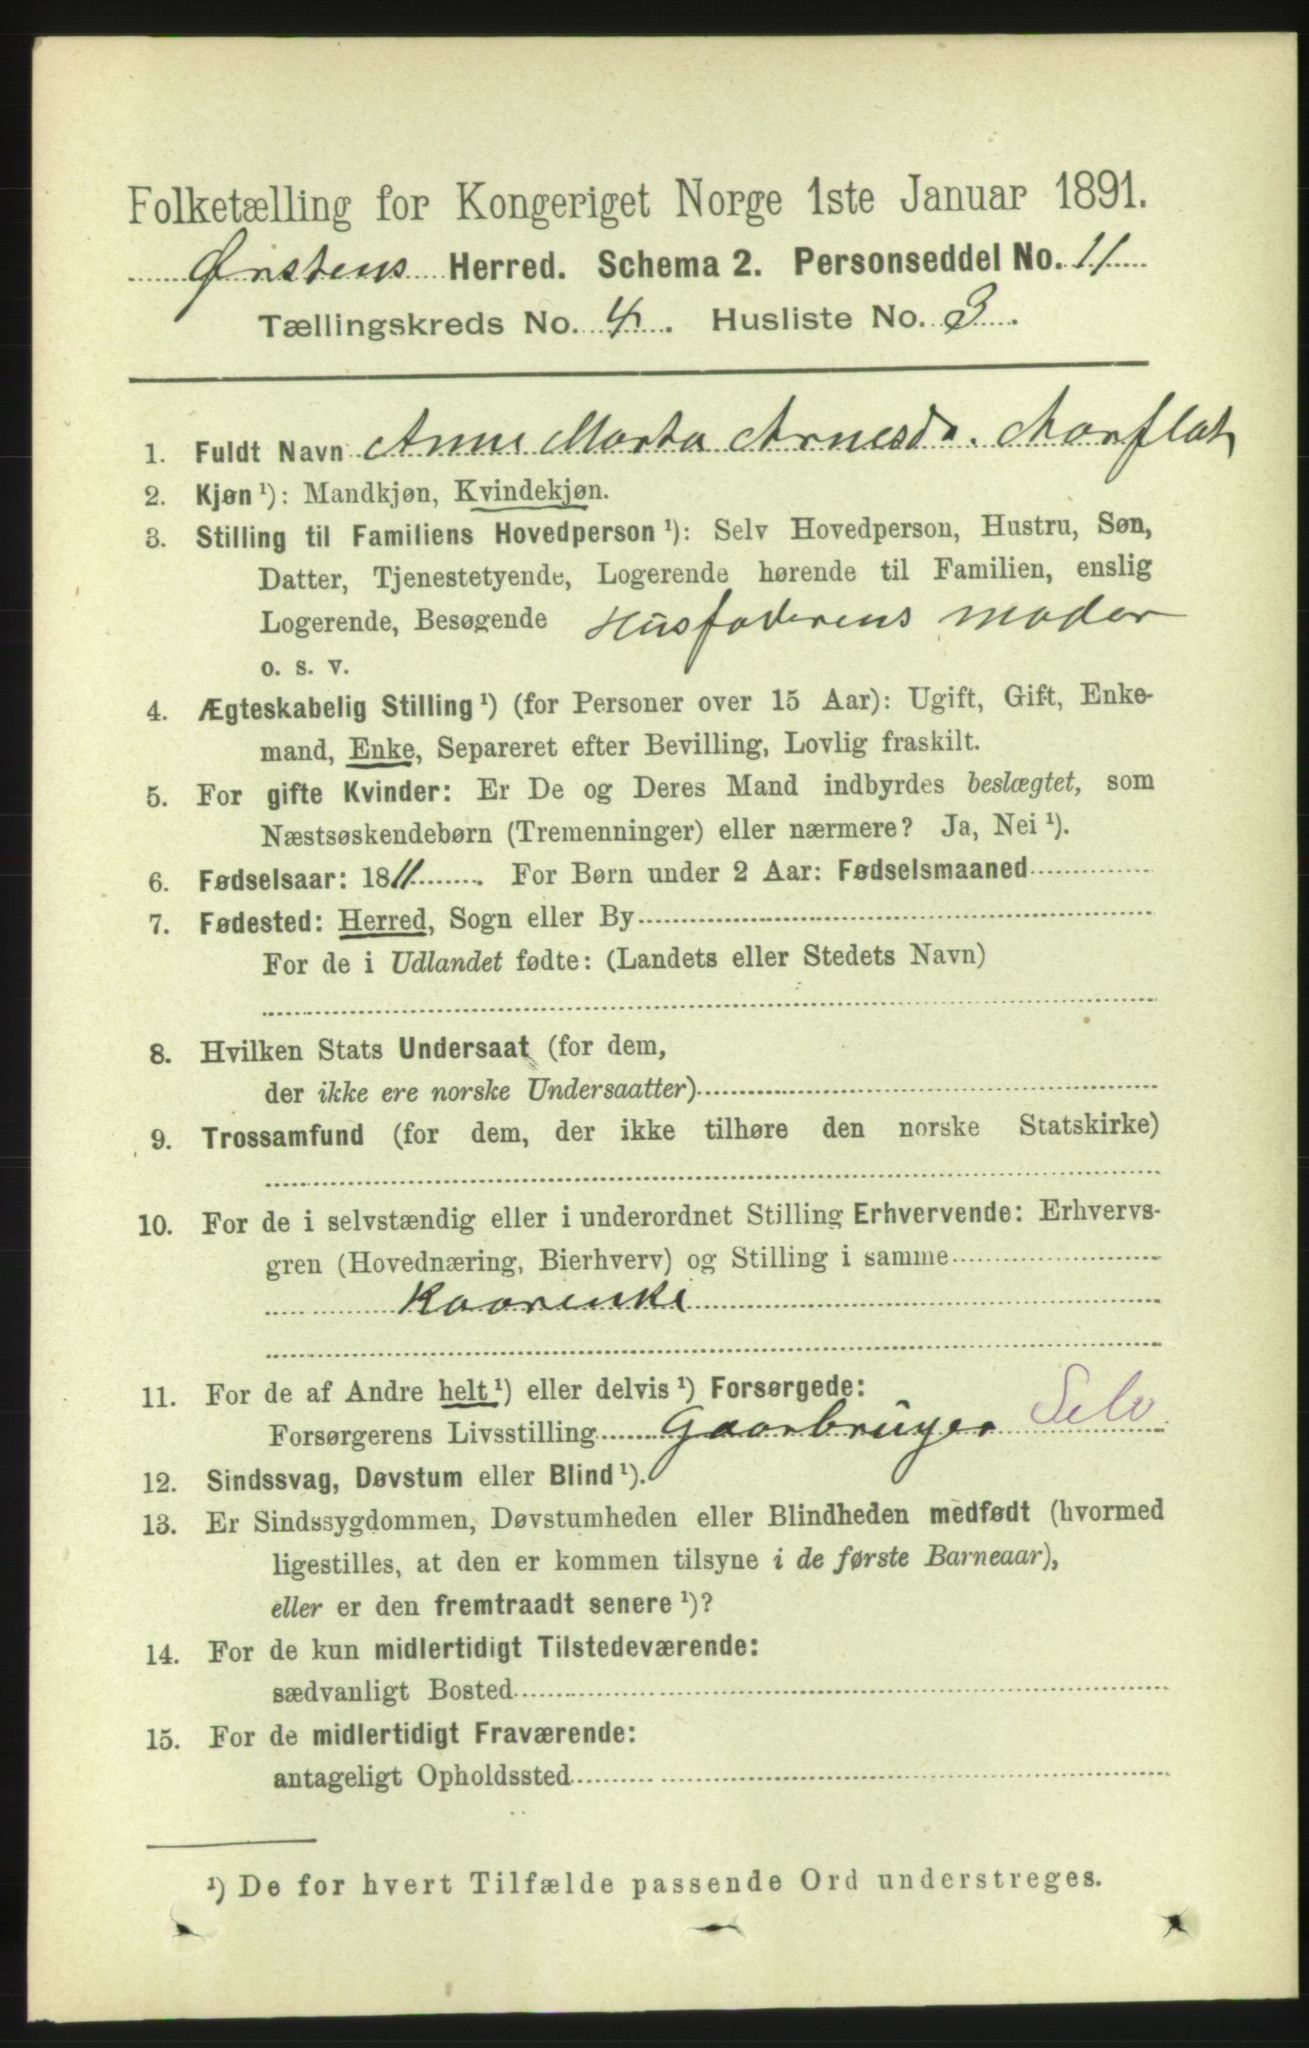 Folketælling for Kongeriget Norge 1ste Januar 1891.
Ørstens Herred. Schema 2. Personseddel No. 11
Tællingskreds No. 4. Husliste No. 3.
1. Fuldt Navn Anne Marta Arnesdr. Morflat
2. Kjøn ¹): Mandkjøn, Kvindekjøn.
3. Stilling til Familiens Hovedperson ¹): Selv Hovedperson, Hustru, Søn,
Datter, Tjenestetyende, Logerende hørende til Familien, enslig
Logerende, Besøgende Husfaderens moder
o. s. v.
4. Ægteskabelig Stilling ¹) (for Personer over 15 Aar): Ugift, Gift, Enke-
mand, Enke, Separeret efter Bevilling, Lovlig fraskilt.
5. For gifte Kvinder: Er De og Deres Mand indbyrdes beslægtet, som
Næstsøskendebørn (Tremenninger) eller nærmere? Ja, Nei ¹).
6. Fødselsaar: 1811. For Børn under 2 Aar: Fødselsmaaned
7. Fødested: Herred, Sogn eller By
For de i Udlandet fødte: (Landets eller Stedets Navn)
8. Hvilken Stats Undersaat (for dem,
der ikke ere norske Undersaatter)
9. Trossamfund (for dem, der ikke tilhøre den norske Statskirke)
10. For de i selvstændig eller i underordnet Stilling Erhvervende: Erhvervs-
gren (Hovednæring, Bierhverv) og Stilling i samme
Kaarenke
11. For de af Andre helt ¹) eller delvis ¹) Forsørgede:
Forsørgerens Livsstilling Gaarbruger Selv
12. Sindssvag, Døvstum eller Blind ¹).
13. Er Sindssygdommen, Døvstumheden eller Blindheden medfødt (hvormed
ligestilles, at den er kommen tilsyne i de første Barneaar),
eller er den fremtraadt senere ¹)?
14. For de kun midlertidigt Tilstedeværende:
sædvanligt Bosted
15. For de midlertidigt Fraværende:
antageligt Opholdssted
¹) De for hvert Tilfælde passende Ord understreges.